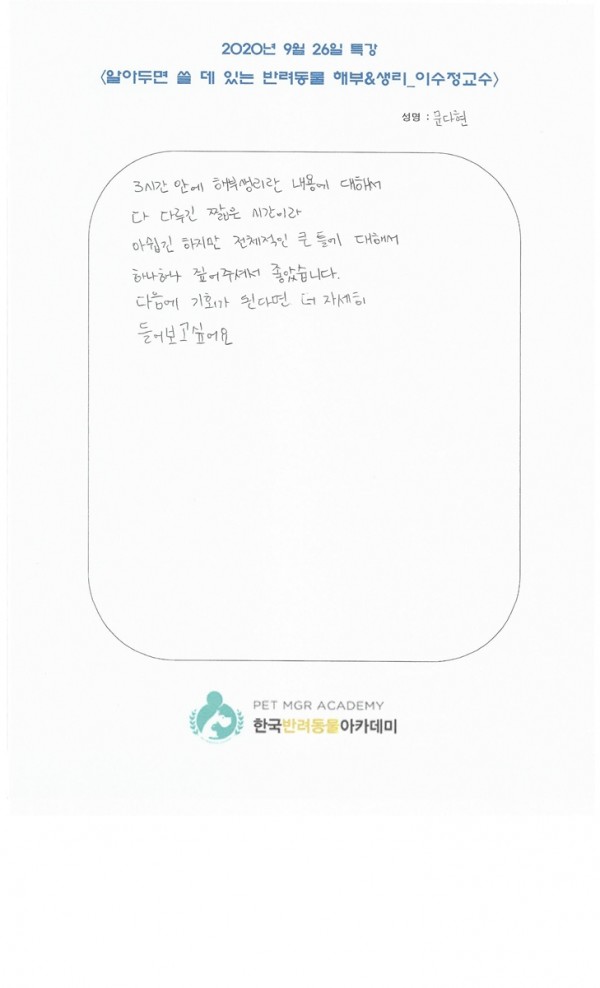 2020년 9월 26일 특강
<알아두면 쓸 데 있는 반려동물 해부&생리_이수정교수>
성명 : 문다현
3시간 안에 해부생리란 내용에 대해서
다 다루긴 짧은 시간이라
아쉽긴 하지만 전체적인 큰 틀에 대해서
하나하나 짚어주셔서 좋았습니다.
다음에 기회가 된다면 더 자세히
들어보고싶어요
PET MGR ACADEMY
한국반려동물아카데미